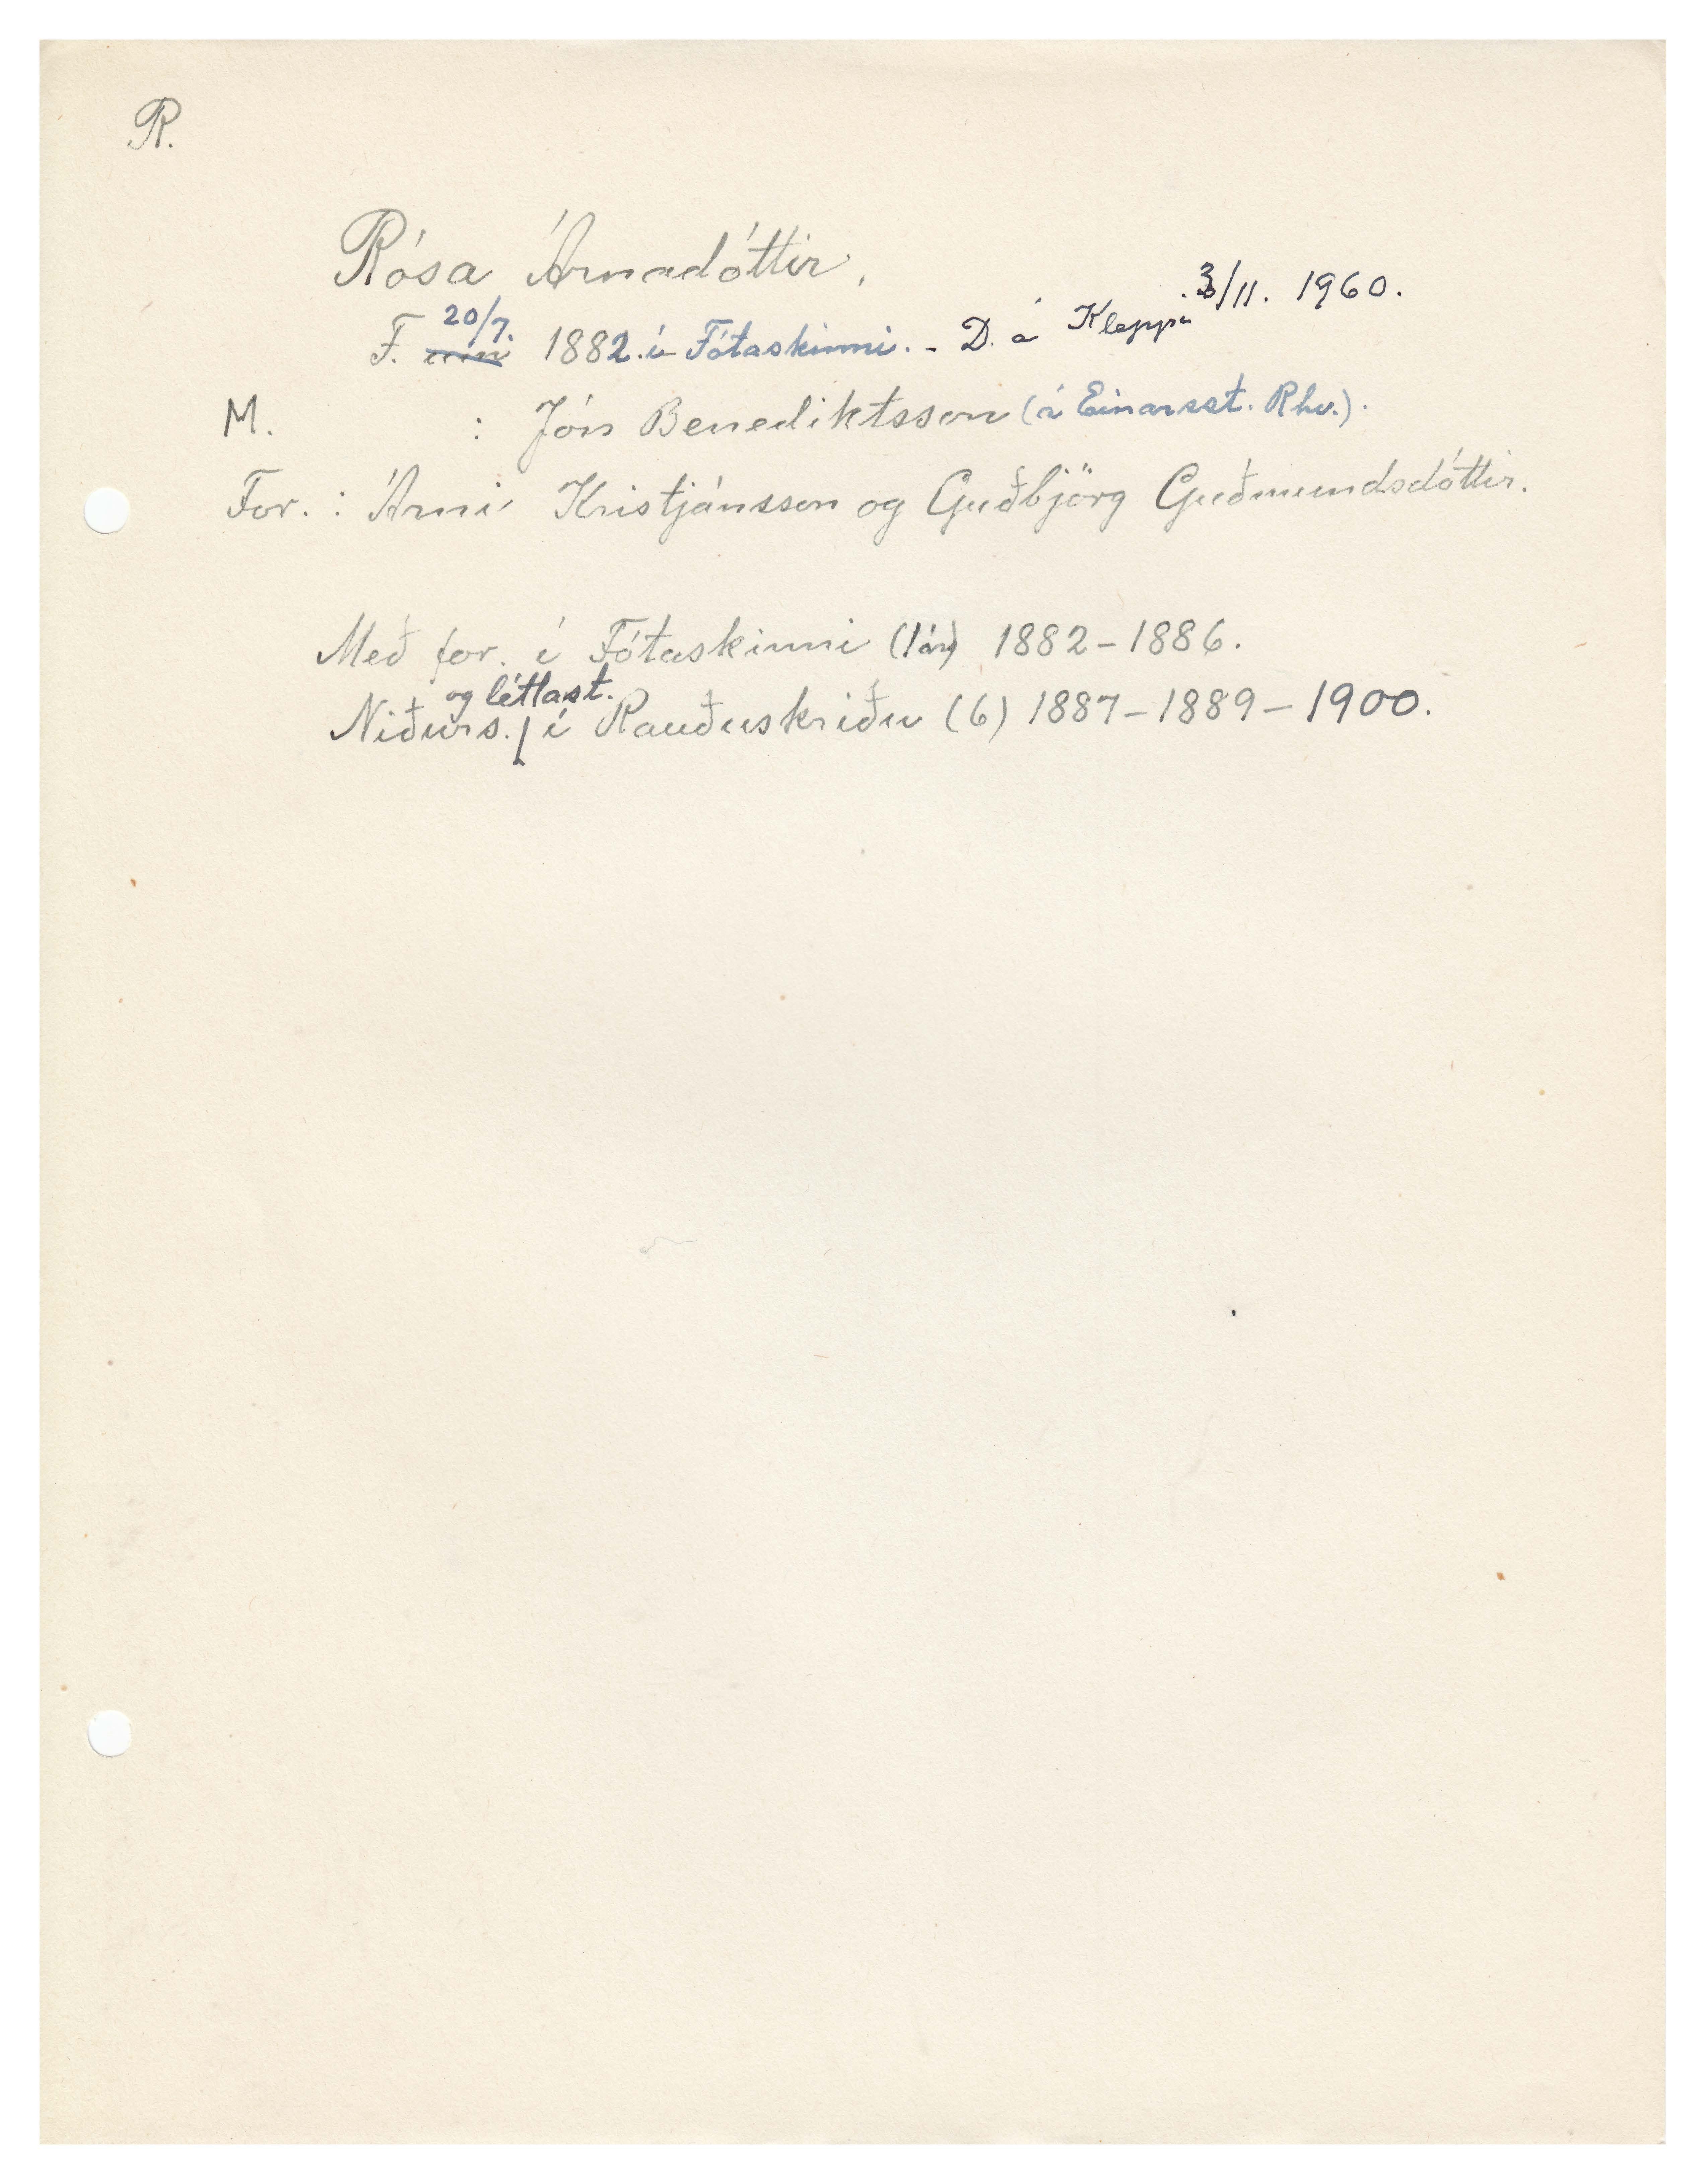 R.
Rósa Árnadóttir,
F. 20/7. 1882 í Fótaskinni. - D. á Kleppi 3/11. 1960.
M. : Jón Benediktsson (á Einarsst. Rhv.).
For. : Árni Kristjánsson og Guðbjörg Guðmundsdóttir.
Með for. í Fótaskinni (1árs) 1882-1886.
og léttast.
Niðurs. / í Rauðuskriðu (6) 1887-1889-1900.